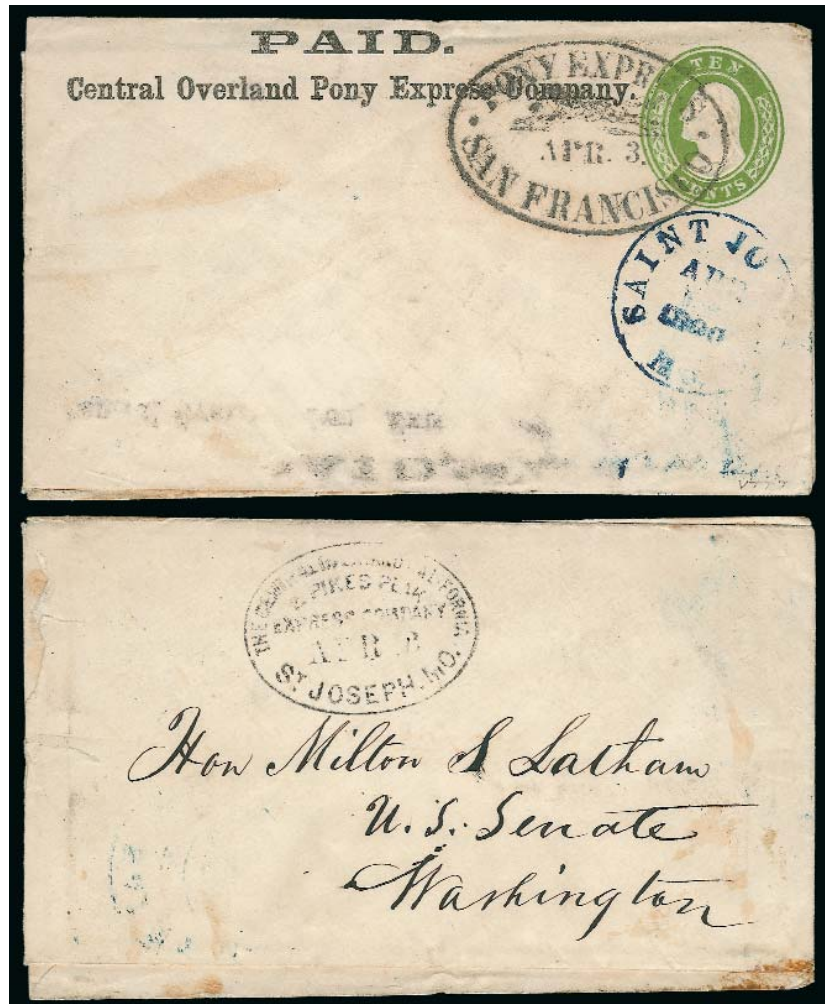 PAID.
Central Overland Pony Express Company.
PONY EXPRESS
APR. 3.
SAN FRANCISCO
TEN
CENTS
SAINT JO
APR
1860
MO.
THE CENTRAL OVERLAND CALIFORNIA
& PIKES PEAK
EXPRESS COMPANY
APR
ST JOSEPH. MO.
Hon Milton S Latham
U. S. Senate
Washington